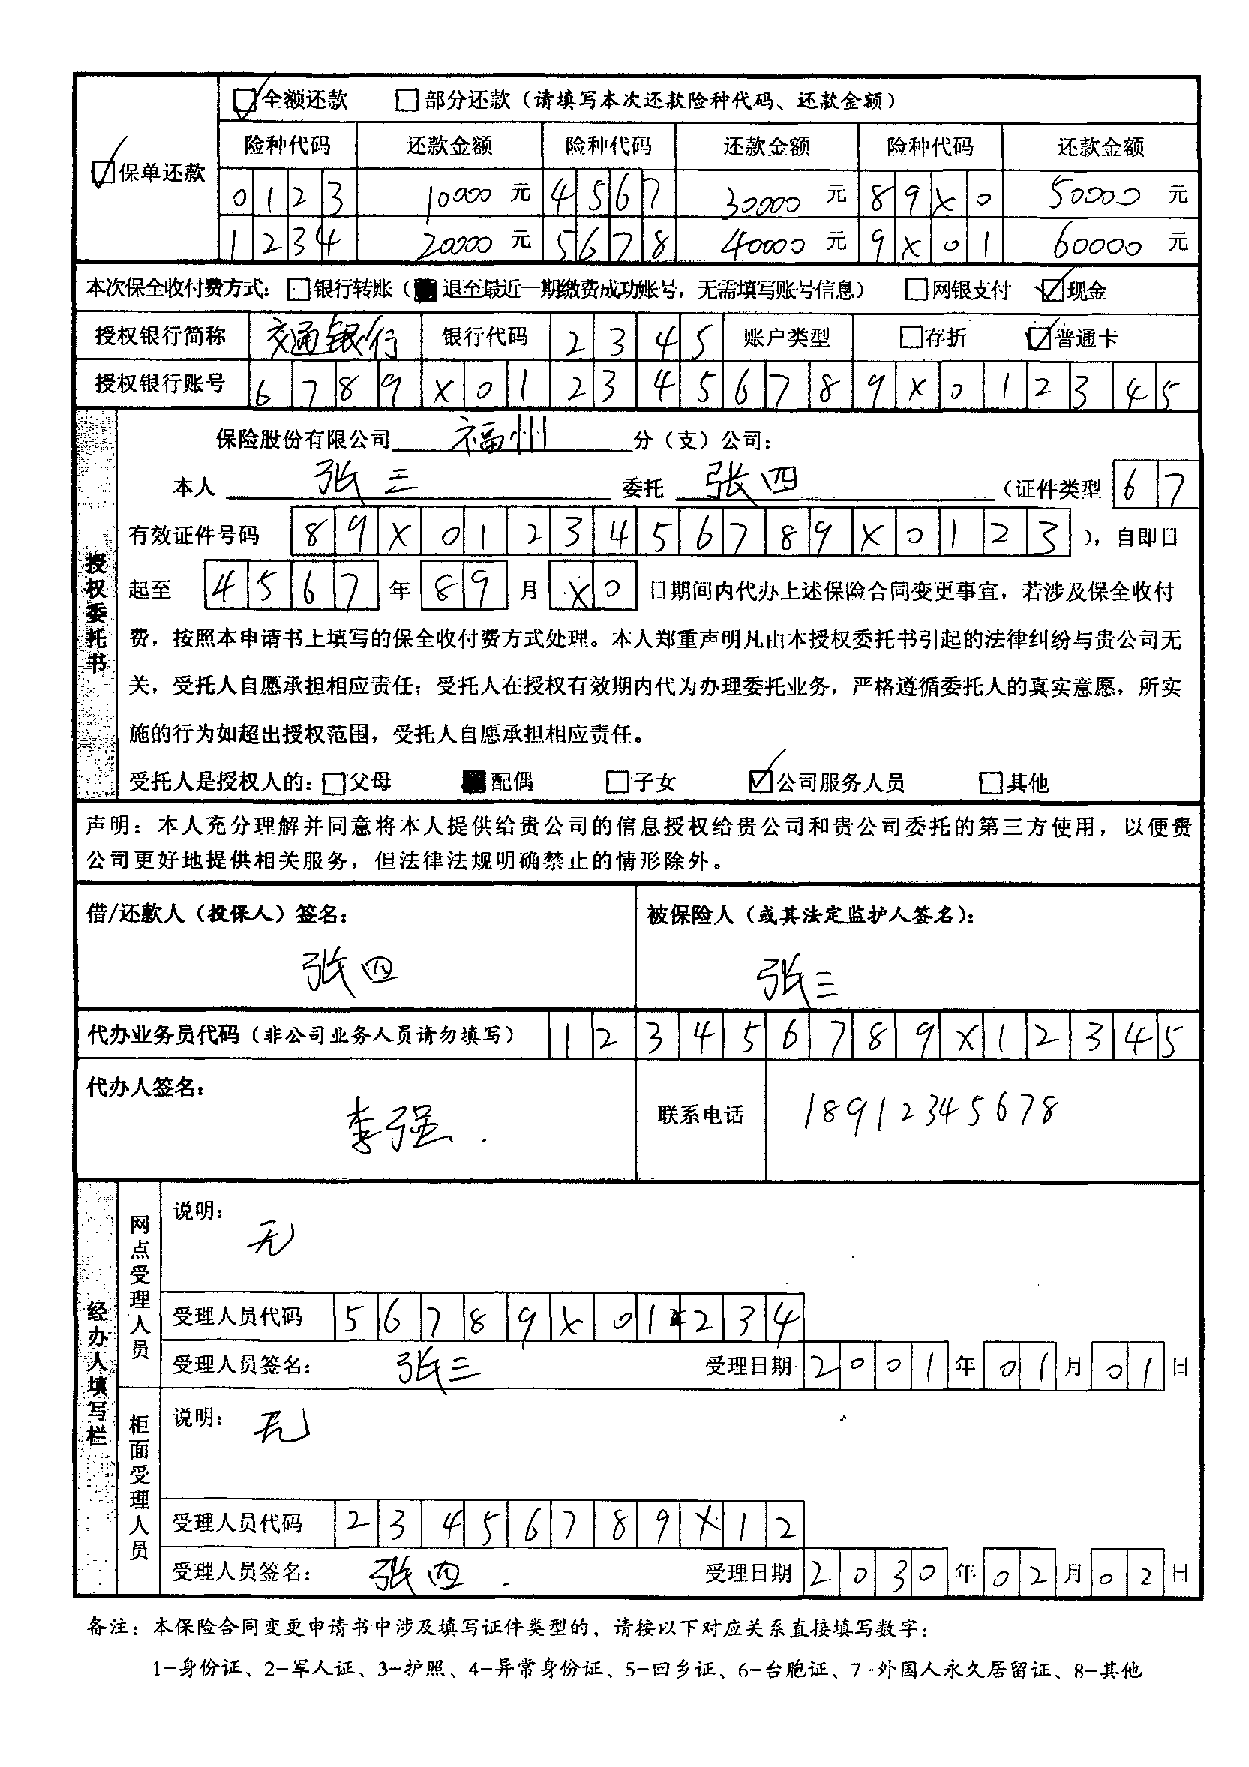 ☑保单还款
☑全额还款 □部分还款（请填写本次还款险种代码、还款金额）
险种代码 还款金额 险种代码 还款金额 险种代码 还款金额
0123 10000元 4567 30000元 89X0 50000元
1234 20000元 5678 40000元 9X01 60000元
本次保全收付费方式：□银行转账（■退至最近一期缴费成功账号，无需填写账号信息） □网银支付 ☑现金
授权银行简称 交通银行 银行代码 2345 账户类型 □存折 ☑普通卡
授权银行账号 6789X0123456789X012345
授权委托书
保险股份有限公司 福州 分（支）公司：
本人 张三 委托 张四 （证件类型 67
有效证件号码 89X0123456789X0123 ），自即日
起至 4567 年 89 月 X0 日期间内代办上述保险合同变更事宜，若涉及保全收付
费，按照本申请书上填写的保全收付费方式处理。本人郑重声明凡由本授权委托书引起的法律纠纷与贵公司无
关，受托人自愿承担相应责任；受托人在授权有效期内代为办理委托业务，严格遵循委托人的真实意愿，所实
施的行为如超出授权范围，受托人自愿承担相应责任。
受托人是授权人的：□父母 ■配偶 □子女 ☑公司服务人员 □其他
声明：本人充分理解并同意将本人提供给贵公司的信息授权给贵公司和贵公司委托的第三方使用，以便贵
公司更好地提供相关服务，但法律法规明确禁止的情形除外。
借/还款人（投保人）签名： 被保险人（或其法定监护人签名）：
张四 张三
代办业务员代码（非公司业务人员请勿填写） 123456789X12345
代办人签名： 李强 联系电话 18912345678
经办人填写栏
网点受理人员
说明：
无
受理人员代码 56789X01234
受理人员签名： 张三 受理日期 2001年01月01日
柜面受理人员
说明： 无
受理人员代码 23456789X12
受理人员签名： 张四 受理日期 2030年02月02日
备注：本保险合同变更申请书中涉及填写证件类型的，请按以下对应关系直接填写数字：
1-身份证、2-军人证、3-护照、4-异常身份证、5-回乡证、6-台胞证、7-外国人永久居留证、8-其他